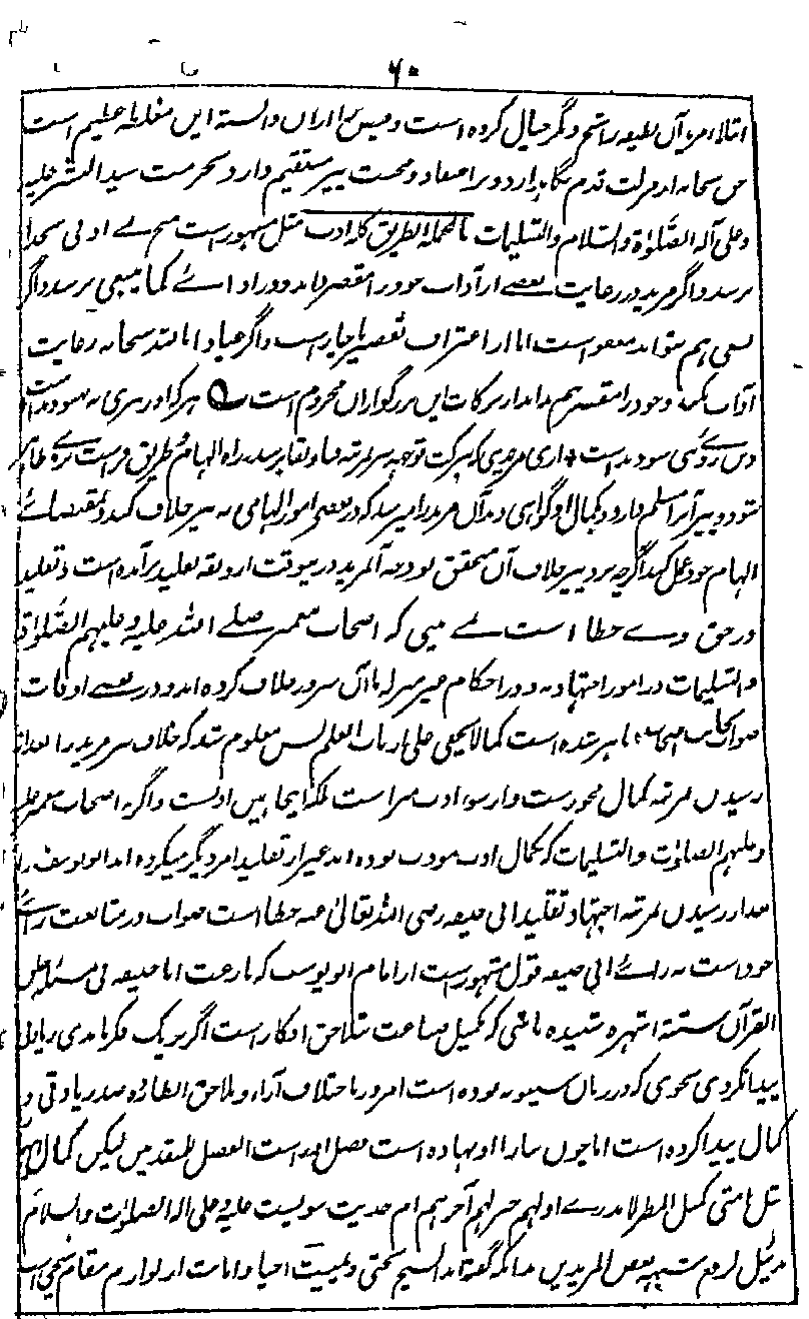 ۶۰
ابتلا امر، آں لطیفہ را شیخ دگر خیال کردہ است و میں ازاں دانستہ ایں مغلطہ عظیم است
حق سبحانہ از مزلت قدم نگاہدارد و بر اعتقاد و محبت پیر مستقیم دارد بحرمت سید البشر علیہ
وعلی آلہ الصلوٰۃ والسلام والتسلیمات بالجملہ الطریق کلہ ادب مثل مشہور است ہیچ بے ادبی بخدا
نرسد و اگر مرید در رعایت بعضے از آداب خود را مقصر داند و در اداے کما ینبغی نرسد و اگر
بسعی ہم نتواند معفو است اما از اعتراف تقصیر ناچار است و اگر عیاذاً باللہ سبحانہ رعایت
آداب نکند و خود را مقصر ہم نداند از برکات ایں بزرگواراں محروم است ہر کرا روے بہ بہبود نداشت
دیدن روے نبی سود نداشت آری مریدی کہ ببرکت توجہ پیر بمرتبہ فنا و بقا برسد و راہ الہام و طریق فراست بروے ظاہر
شود و پیر آنرا مسلم دارد و بکمال او گواہی دہد آں مرید را میرسد کہ در بعضے امور الہامی بہ پیر خلاف کند و بمقتضاے
الہام خود عمل کند اگرچہ نزد پیر خلاف آں متحقق بود چہ آں مرید دریں وقت از ربقہ تقلید برآمدہ است و تقلید
در حق وے خطا است نمے بینی کہ اصحاب پیغمبر صلے اللہ علیہ وعلیہم الصلوٰۃ
والتسلیمات در امور اجتہادیہ و در احکام غیر منزلہ باآں سرور خلاف کردہ اند و در بعضے اوقات
صواب بجانب اصحاب ظاہر شدہ است کما لا یخفی علی ارباب العلم پس معلوم شد کہ خلاف پیر مرید را بعد از
رسیدن بمرتبہ کمال مجوز است و از سوء ادب مبرا است بلکہ اینجا ہمیں ادبست واگر نہ اصحاب پیغمبر علیہ
وعلیہم الصلوٰت والتسلیمات کہ بکمال ادب مودب بودہ اند غیر از تقلید امر دیگر نمیکردہ اند ابو یوسف را
بعد از رسیدن بمرتبہ اجتہاد تقلید ابی حنیفہ رضی اللہ تعالیٰ عنہ خطا است صواب در متابعت راے
خود است نہ راے ابی حنیفہ قول مشہور است از امام ابو یوسف کہ نازعت ابا حنیفہ فی مسئلہ خلق
القرآن ستتہ اشہر شنیدہ باشی کہ تکمیل صناعت بتلاحق افکار است اگر بر یک فکر ماندی زیادتی
پیدا نکردی نحوی کہ در زمان سیبویہ بودہ است امروز باختلاف آراء و تلاحق انظار دہ صد زیادتی و
کمال پیدا کردہ است اما چوں بنا را او نہادہ است فضل او را است الفضل للمتقدمین لیکن کمال
مثل امتی کمثل المطر لا یدرے اولہم خیر ام آخرہم حدیث نبویست علیہ وعلی الہ الصلوٰت والسلام
تذییل لرفع شبہہ بعض المریدین بدانکہ گفتہ اند الشیخ یحیی ویمیت احیا و اماتت از لوازم مقام شیخی است